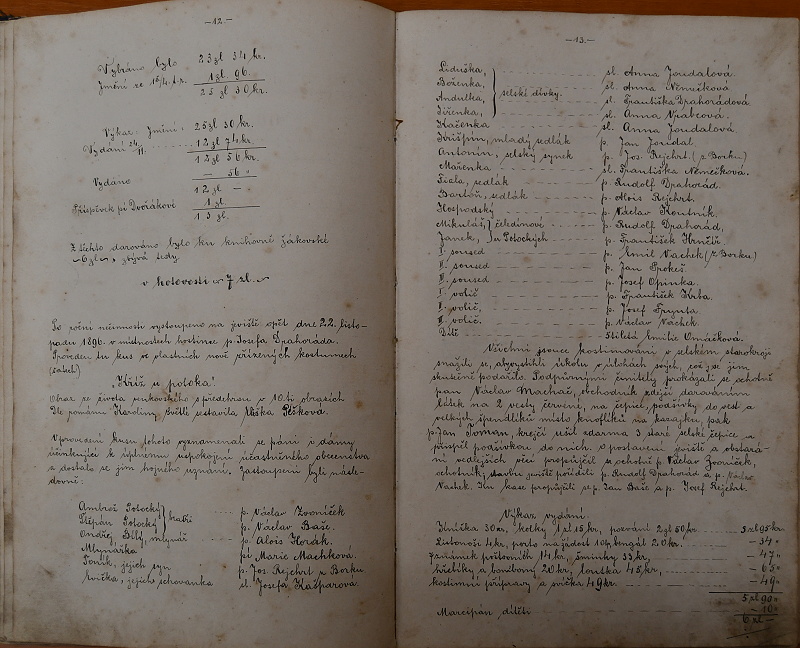 —12.—
Vybráno bylo 23 zl 34 kr.
Jmění ze 16/4. t. r. 1 zl. 96.
25 zl 30 kr.
Výkaz. Jmění: 25 zl 30 kr.
Vydání 24/11. 12 zl 74 kr.
12 zl 56 kr.
Vydáno — 56 "
12 zl —
Příspěvek pí Dvořákové 1 zl.
13 zl.
Z těchto darováno bylo ku knihovně žákovské
6 zl, zbývá tedy
v hotovosti 7 zl.
Po roční nečinnosti vystoupeno na jeviště opět dne 22. listo-
padu 1896. v místnostech hostince p. Josefa Drahoráda.
Proveden tu kus ve vlastních nově pořízených kostumech
"Kříž u potoka".
Obraz ze života venkovského s předehrou v 10. ti obrazích
Dle románu Karoliny Světlé sestavila Eliška Pešková.
V provození kusu tohoto vyznamenali se páni i dámy
účinkující k úplnému uspokojení účastněného obecenstva
a dostalo se jim hojného uznání. Zastoupeni byli násle-
dovně:
Ambrož Potocký } bratři p. Václav Zvoníček
Štěpán Potocký p. Václav Baše.
Ondřej Bílý, mlynář p. Alois Horák.
Mlynářka pí Marie Machková.
Toník, jejich syn p. Jos. Rejchrt z Borku
Evička, jejich schovanka sl. Josefa Kašparová.
—13.—
Liduška, sl. Anna Joudalová.
Bořenka, sl. Anna Němečková
Andulka, } selské dívky. sl. Františka Drahorádová
Jiřenka, sl. Anna Vrabcová.
Kačenka sl. Anna Joudalová.
Krišpín, mladý sedlák p. Jan Joudal
Antonín, selský synek p. Jos. Rejchrt. (z Borku)
Mařenka sl. Františka Němečková.
Fiala, sedlák p. Rudolf Drahorád.
Bartoň, sedlák p. Alois Rejchrt.
Hospodský p. Václav Koutník.
Mikuláš, } čeledínové p. Rudolf Drahorád,
Janek, } u Potockých p. František Hrnčíř.
I. soused p. Emil Vachek (z Borku)
II. soused p. Jan Prokeš.
III. soused p. Josef Opinka.
I. volič p. František Skrta.
II. volič, p. Josef Frynta
III. volič. p. Václav Vachek.
Dítě 5tiletá Emilie Omáčková.
Všichni jsouce kostimováni v selském starokroji
snažili se, aby vystihli úkolu v úlohách svých, což se jim
skutečně podařilo. Podpůrnými činiteli prokázali se ochotně
pan Václav Machač, obchodník zdejší darováním
látek na 2 vesty červené, na čepice, podšívky do vest a
velkých špendlíků místo knoflíků na kazajky, pak
p. Jan Toman, krejčí ušil zdarma 3 staré selské čepice a
přispěl podšívkou do nich. O postavení jeviště a obstará-
ní vedlejších věcí propůjčil se ochotně p. Václav Zvoníček,
ochotník, stavbu jeviště pořídili p. Rudolf Drahorád a p. Václav
Vachek. Ku kase propůjčili se p. Jan Baše a p. Josef Rejchrt.
Výkaz vydání.
Knížka 30 kr, kolky 1 zl 15 kr, pozvání 2 zl 50 kr. 3 zl 95 kr.
Listonoši 4 kr, porto na žádost 10 kr, bengál 20 kr. — 34 "
7 známek poštovních 14 kr, šminky 33 kr, — 47 "
hřebíky a bonbony 20 kr, loutka 45 kr, — 65 "
kostimní přípravy a svíčka 49 kr. — 49 "
5 zl 90 "
Marcipán dítěti — 10 "
6 zl —